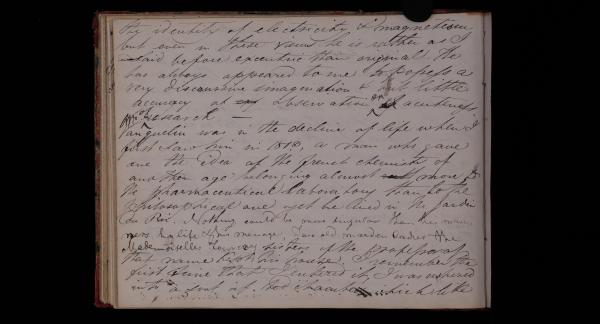 the identity of electricity & magnetism
but even in these views he is rather as I
said before excentric than original. He
has always appeared to me to possess a
very discursive imagination & but little
accuracy of observation or acuteness
of research —
Vauquelin was in the decline of life when I
first saw him in 1813, a man who gave
me the idea of the french chemists of
another age belonging almost more to
the pharmaceutical laboratory than to the
philosophical one yet he lived in the Jardin
du Roi. Nothing could be more singular than his man
ners his life & his menage. Two old maiden Ladies the
Mademoiselles Fourcroy sisters of the professor of
that name kept his house. I remember the
first time that I entered it, I was ushered
into a sort of bed chamber which like